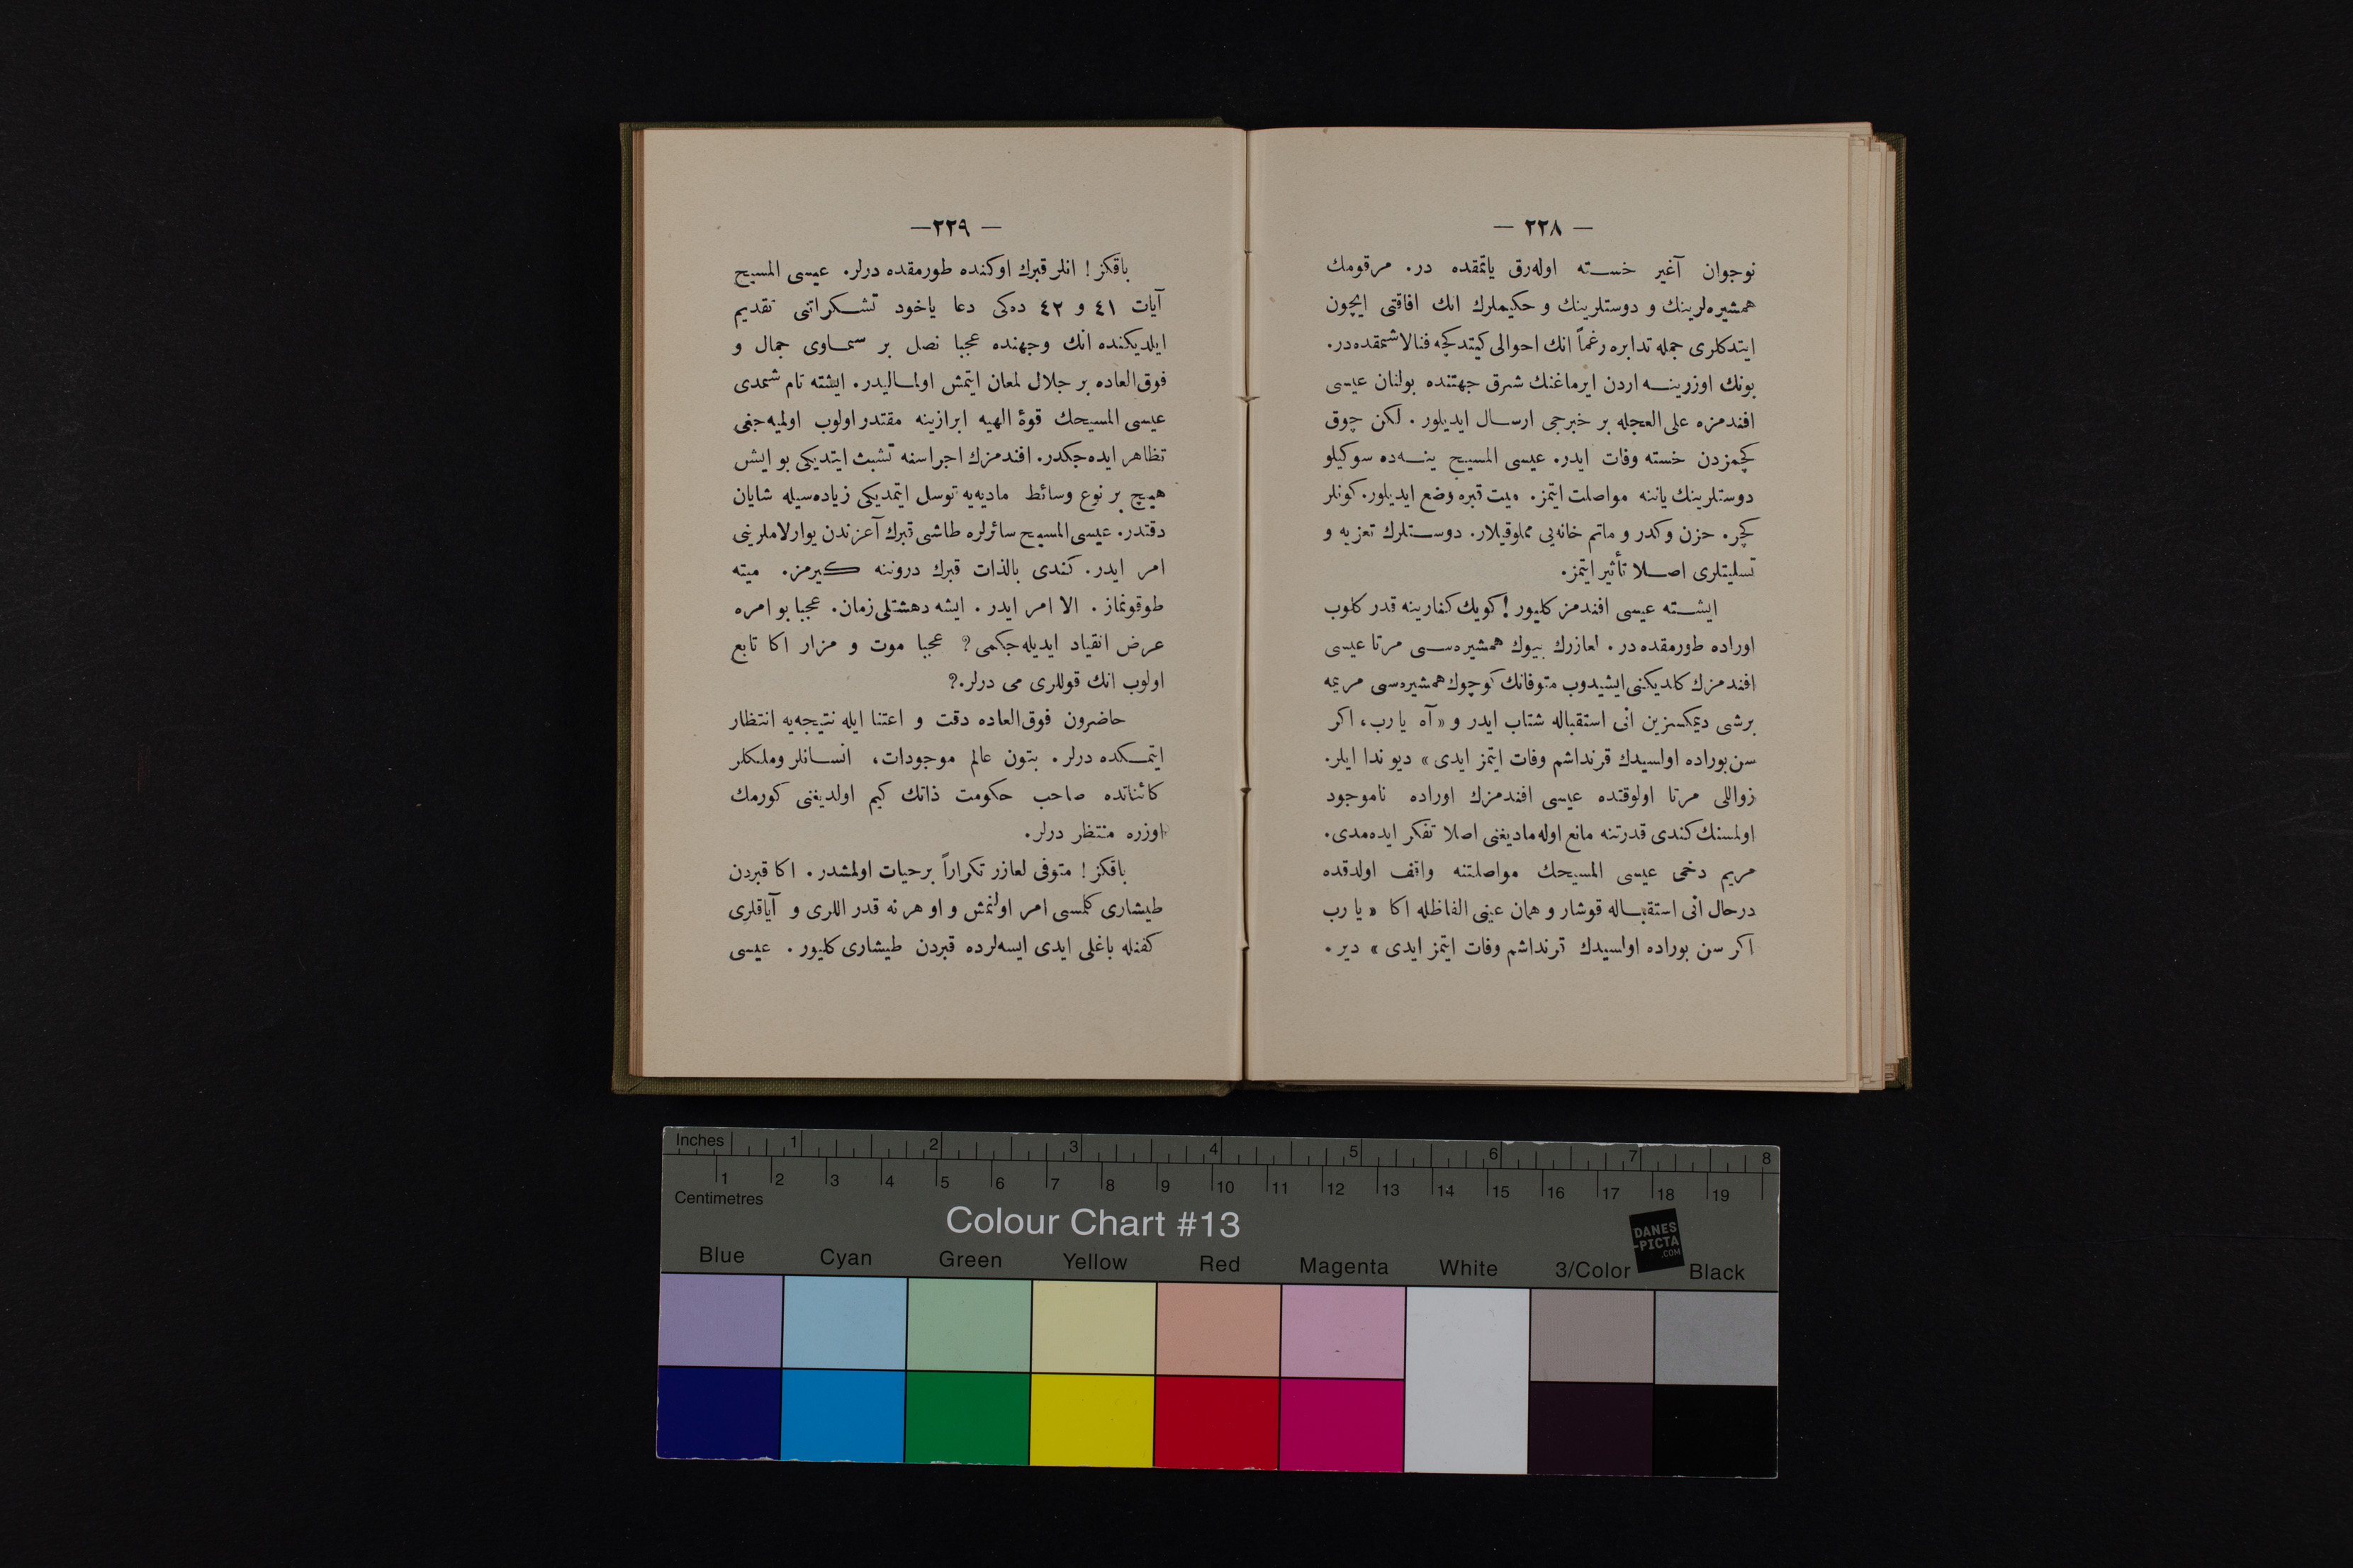 — ٢٢٨ —
نوجوان آغیر خسته اوله‌رق یاتمقده در. مرقومك
همشیره‌لرینك و دوستلرینك و حکیملرك انك افاقتی ایچون
ایتدکلری جمله تدابره رغماً انك احوالی کیتدکجه فنالاشمقده‌در.
بونك اوزرینه اردن ایرماغنك شرق جهتنده بولنان عیسی
افندمزه علی العجله بر خبرجی ارسال ایدیلور. لکن چوق
کچمزدن خسته وفات ایدر. عیسی المسیح ینه‌ده سوکیلو
دوستلرینك یاننه مواصلت ایتمز. میت قبره وضع ایدیلور. کونلر
کچر. حزن وکدر و ماتم خانه‌یی مملوقیلار. دوستلرك تعزیه و
تسلیتلری اصلا تأثیر ایتمز.
ایشته عیسی افندمز کلیور! کویك کنارینه قدر کلوب
اوراده طورمقده در. لعازرك بیوك همشیره‌سی مرتا عیسی
افندمزك کلدیکنی ایشیدوب متوفانك کوچوك همشیره‌سی مریمه
برشی دیمکسزین انی استقباله شتاب ایدر و «آه یا رب، اکر
سن بوراده اولسیدك قرنداشم وفات ایتمز ایدی» دیو ندا ایلر.
زواللی مرتا اولوقتده عیسی افندمزك اوراده ناموجود
اولمسنك کندی قدرتنه مانع اوله‌مادیغنی اصلا تفکر ایده‌مدی.
مریم دخی عیسی المسیحك مواصلتنه واقف اولدقده
درحال انی استقباله قوشار و همان عینی الفاظله اکا «یا رب
اکر سن بوراده اولسیدك قرنداشم وفات ایتمز ایدی» دیر.
— ٢٢٩ —
باقکز! انلر قبرك اوکنده طورمقده درلر. عیسی المسیح
آیات ٤١ و ٤٢ ده‌کی دعا یاخود تشکراتنی تقدیم
ایلدیکنده انك وجهنده عجبا نصل بر سماوی جمال و
فوق‌العاده بر جلال لمعان ایتمش اولمالیدر. ایشته تام شمدی
عیسی المسیحك قوهٔ الهیه ابرازینه مقتدر اولوب اولمیه‌جغی
تظاهر ایده‌جکدر. افندمزك اجراسنه تشبث ایتدیکی بو ایش
هیچ بر نوع وسائط مادیه‌یه توسل ایتمدیکی زیاده‌سیله شایان
دقتدر. عیسی المسیح سائرلره طاشی قبرك آغزندن یوارلاملرینی
امر ایدر. کندی بالذات قبرك درونینه کیرمز. میته
طوقونماز. الا امر ایدر. ایشه دهشتلی زمان. عجبا بو امره
عرض انقیاد ایدیله‌جکمی؟ عجبا موت و مزار اکا تابع
اولوب انك قوللری می درلر.؟
حاضرون فوق‌العاده دقت و اعتنا ایله نتیجه‌یه انتظار
ایتمکده درلر. بتون عالم موجودات، انسانلر وملکلر
کائناتده صاحب حکومت ذاتك کیم اولدیغنی کورمك
اوزره منتظر درلر.
باقکز! متوفی لعازر تکراراً برحیات اولمشدر. اکا قبردن
طیشاری کلمسی امر اولنمش و او هر نه قدر اللری و آیاقلری
کفنله باغلی ایدی ایسه‌لرده قبردن طیشاری کلیور. عیسی
Inches 1 2 3 4 5 6 7 8
1 2 3 4 5 6 7 8 9 10 11 12 13 14 15 16 17 18 19
Centimetres
Colour Chart #13
DANES
-PICTA
.COM
Blue Cyan Green Yellow Red Magenta White 3/Color Black